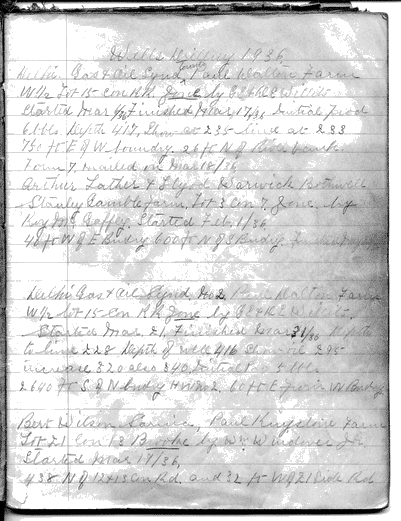 Wells Drilling 1936
Delphi Gas & Oil Synd, Paul Dalton Farm
W½ Lot 15 Con R.R. Zone by C E & R E Willits
Started Mar 4/36 Finished Mar 17/36 Initial Prod
6 bbls. Depth 417, Show at 235 lime at 233
750 ft E of W boundry. 26 ft N of River bank
Form 7, mailed on Mar 18/36
Arthur Lather & Lloyd Warwick Bothwell
Stanley Gamble Farm, Lot 3 Con 7, Zone, by
Roy McGaffey. Started Feb 1/36,
48 ft W of E Bndry 600 ft N of S Bndry
Delphi Gas & Oil Synd, No 2, Paul Dalton Farm
W½ Lot 15 Con R.R. Zone by C E & R E Willits,
Started Mar 21, Finished Mar 31/36 Depth
to lime 228 Depth of well 416 Show oil 295
increase 320 also 340 Initial Prod 5 bbls
2640 ft S of N bndry 60 ft E from W Bndry
Bert Wilson Sarnia, Paul Farm
Lot 21 Con 13 Brooke by Wm Windover Jr,
Started Mar 17/36,
438 N of 12 & 13 Con Rd. and 32 ft W of 21 Side Rd